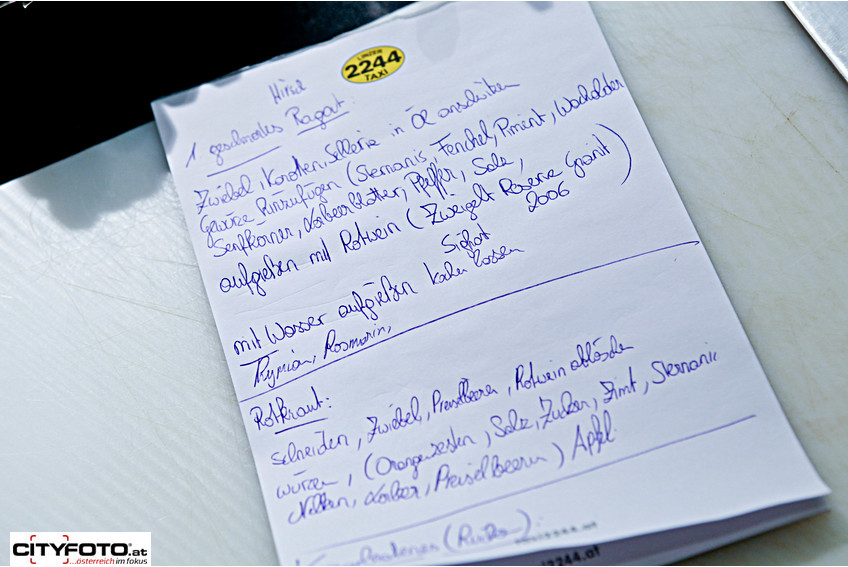 LINZER
2244
TAXI
Hirsch
1. geschmortes Ragout:
Zwiebel, Karotten, Sellerie in Öl anschwitzen
Gewürze hinzufügen (Sternanis, Fenchel, Piment, Wacholder
Senfkörner, Lorbeerblätter, Pfeffer, Salz,
aufgießen mit Rotwein (Zweigelt Reserve Granit)
2006
mit Wasser aufgießen kochen lassen
Thymian, Rosmarin,
Rotkraut:
schneiden, Zwiebel, Preiselbeeren, Rotwein ablöschen
würzen, (Orangenzesten, Salz, Zucker, Zimt, Sternanis
Nelken, Lorbeer, Preiselbeeren) Apfel
2244.at
CITYFOTO.at
...österreich im fokus